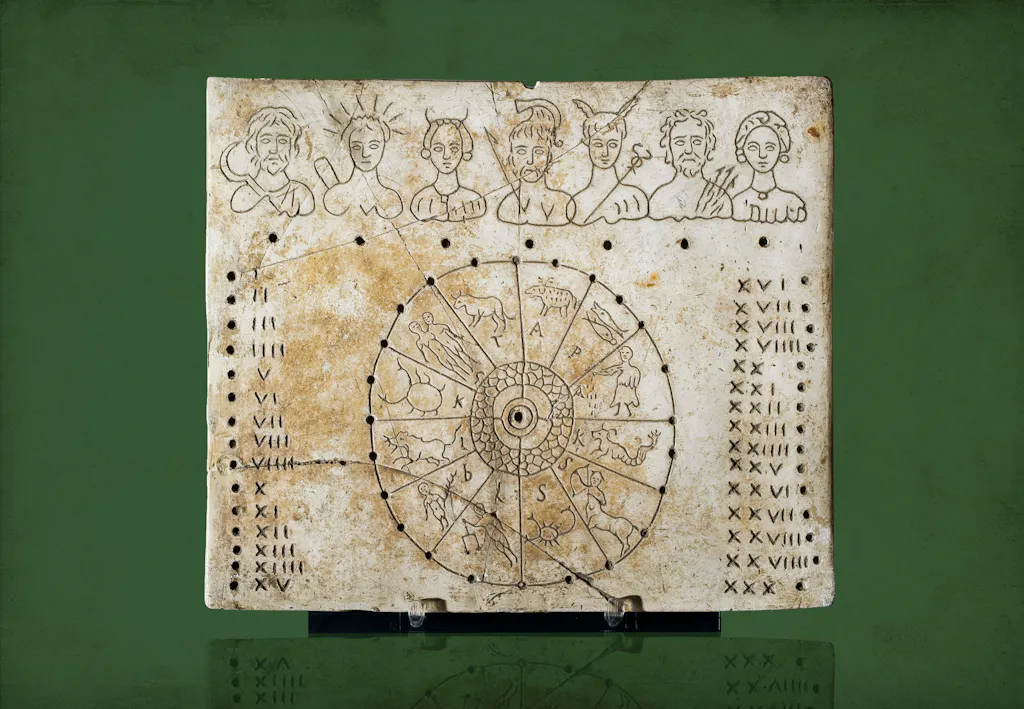 I
II
III
IIII
V
VI
VII
VIII
VIIII
X
XI
XII
XIII
XIIII
XV
T
A
P
K
K
L
b
S
XVI
XVII
XVIII
XVIIII
XX
XXI
XXII
XXIII
XXIIII
XXV
XXVI
XXVII
XXVIII
XXVIIII
XXX